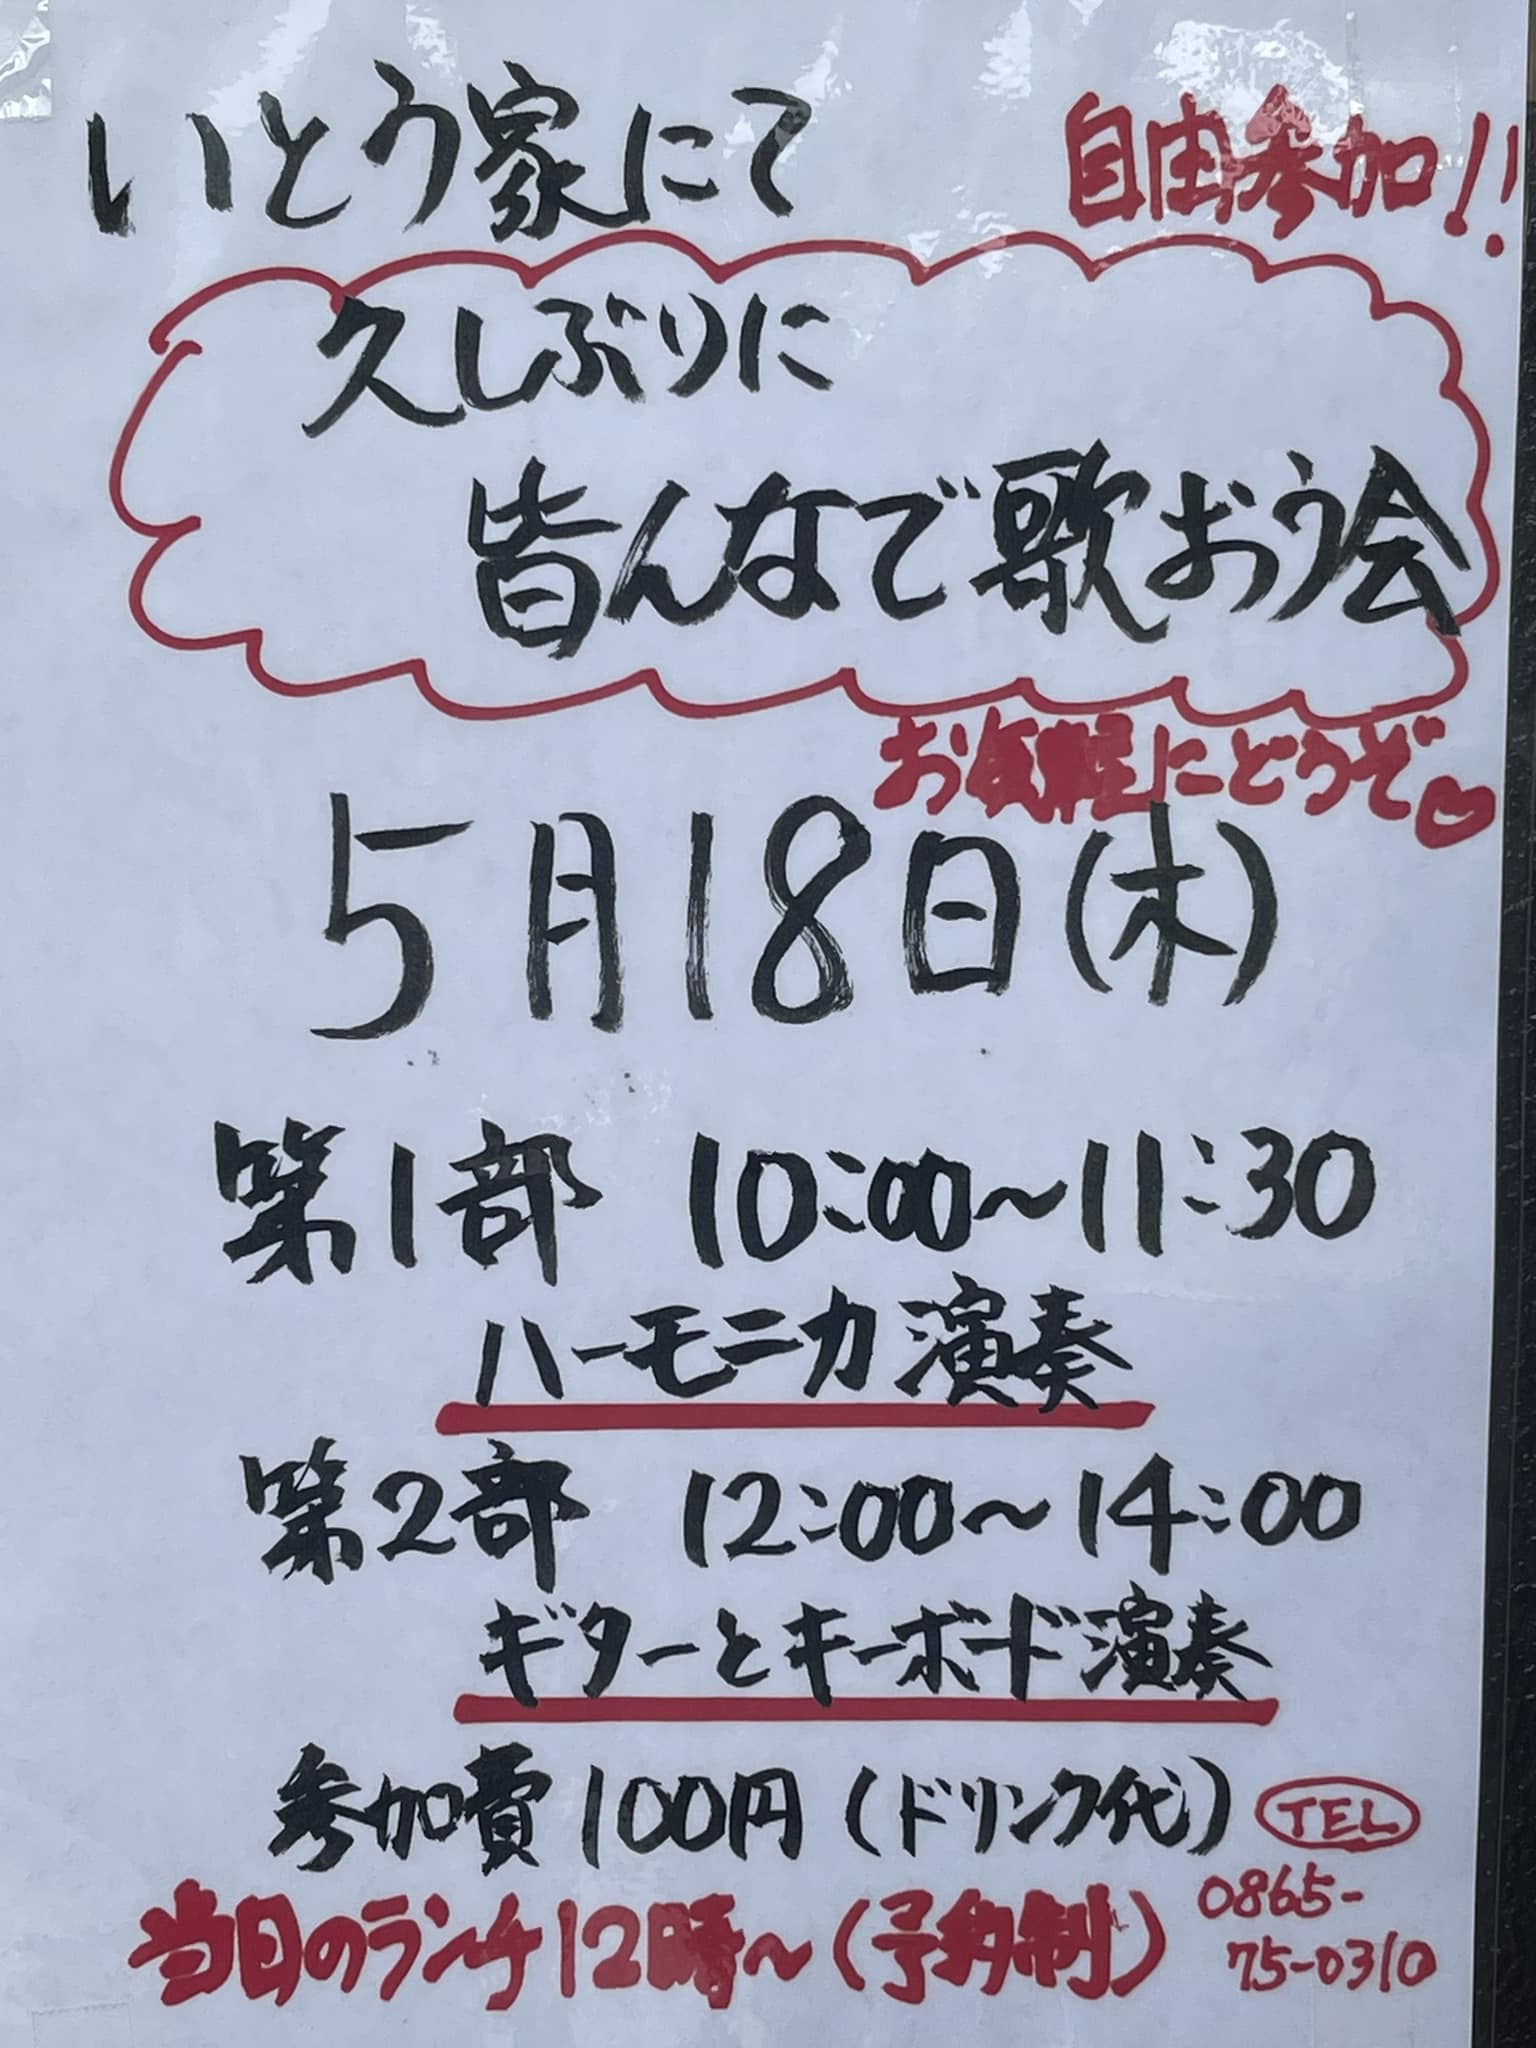 いとう家にて
自由参加!!
久しぶりに
皆んなで歌おう会
お気軽にどうぞ
5月18日(木)
第1部 10:00〜11:30
ハーモニカ演奏
第2部 12:00〜14:00
ギターとキーボード演奏
参加費100円(ドリンク代)
TEL
0865-
75-0310
当日のランチ12時〜(予約制)